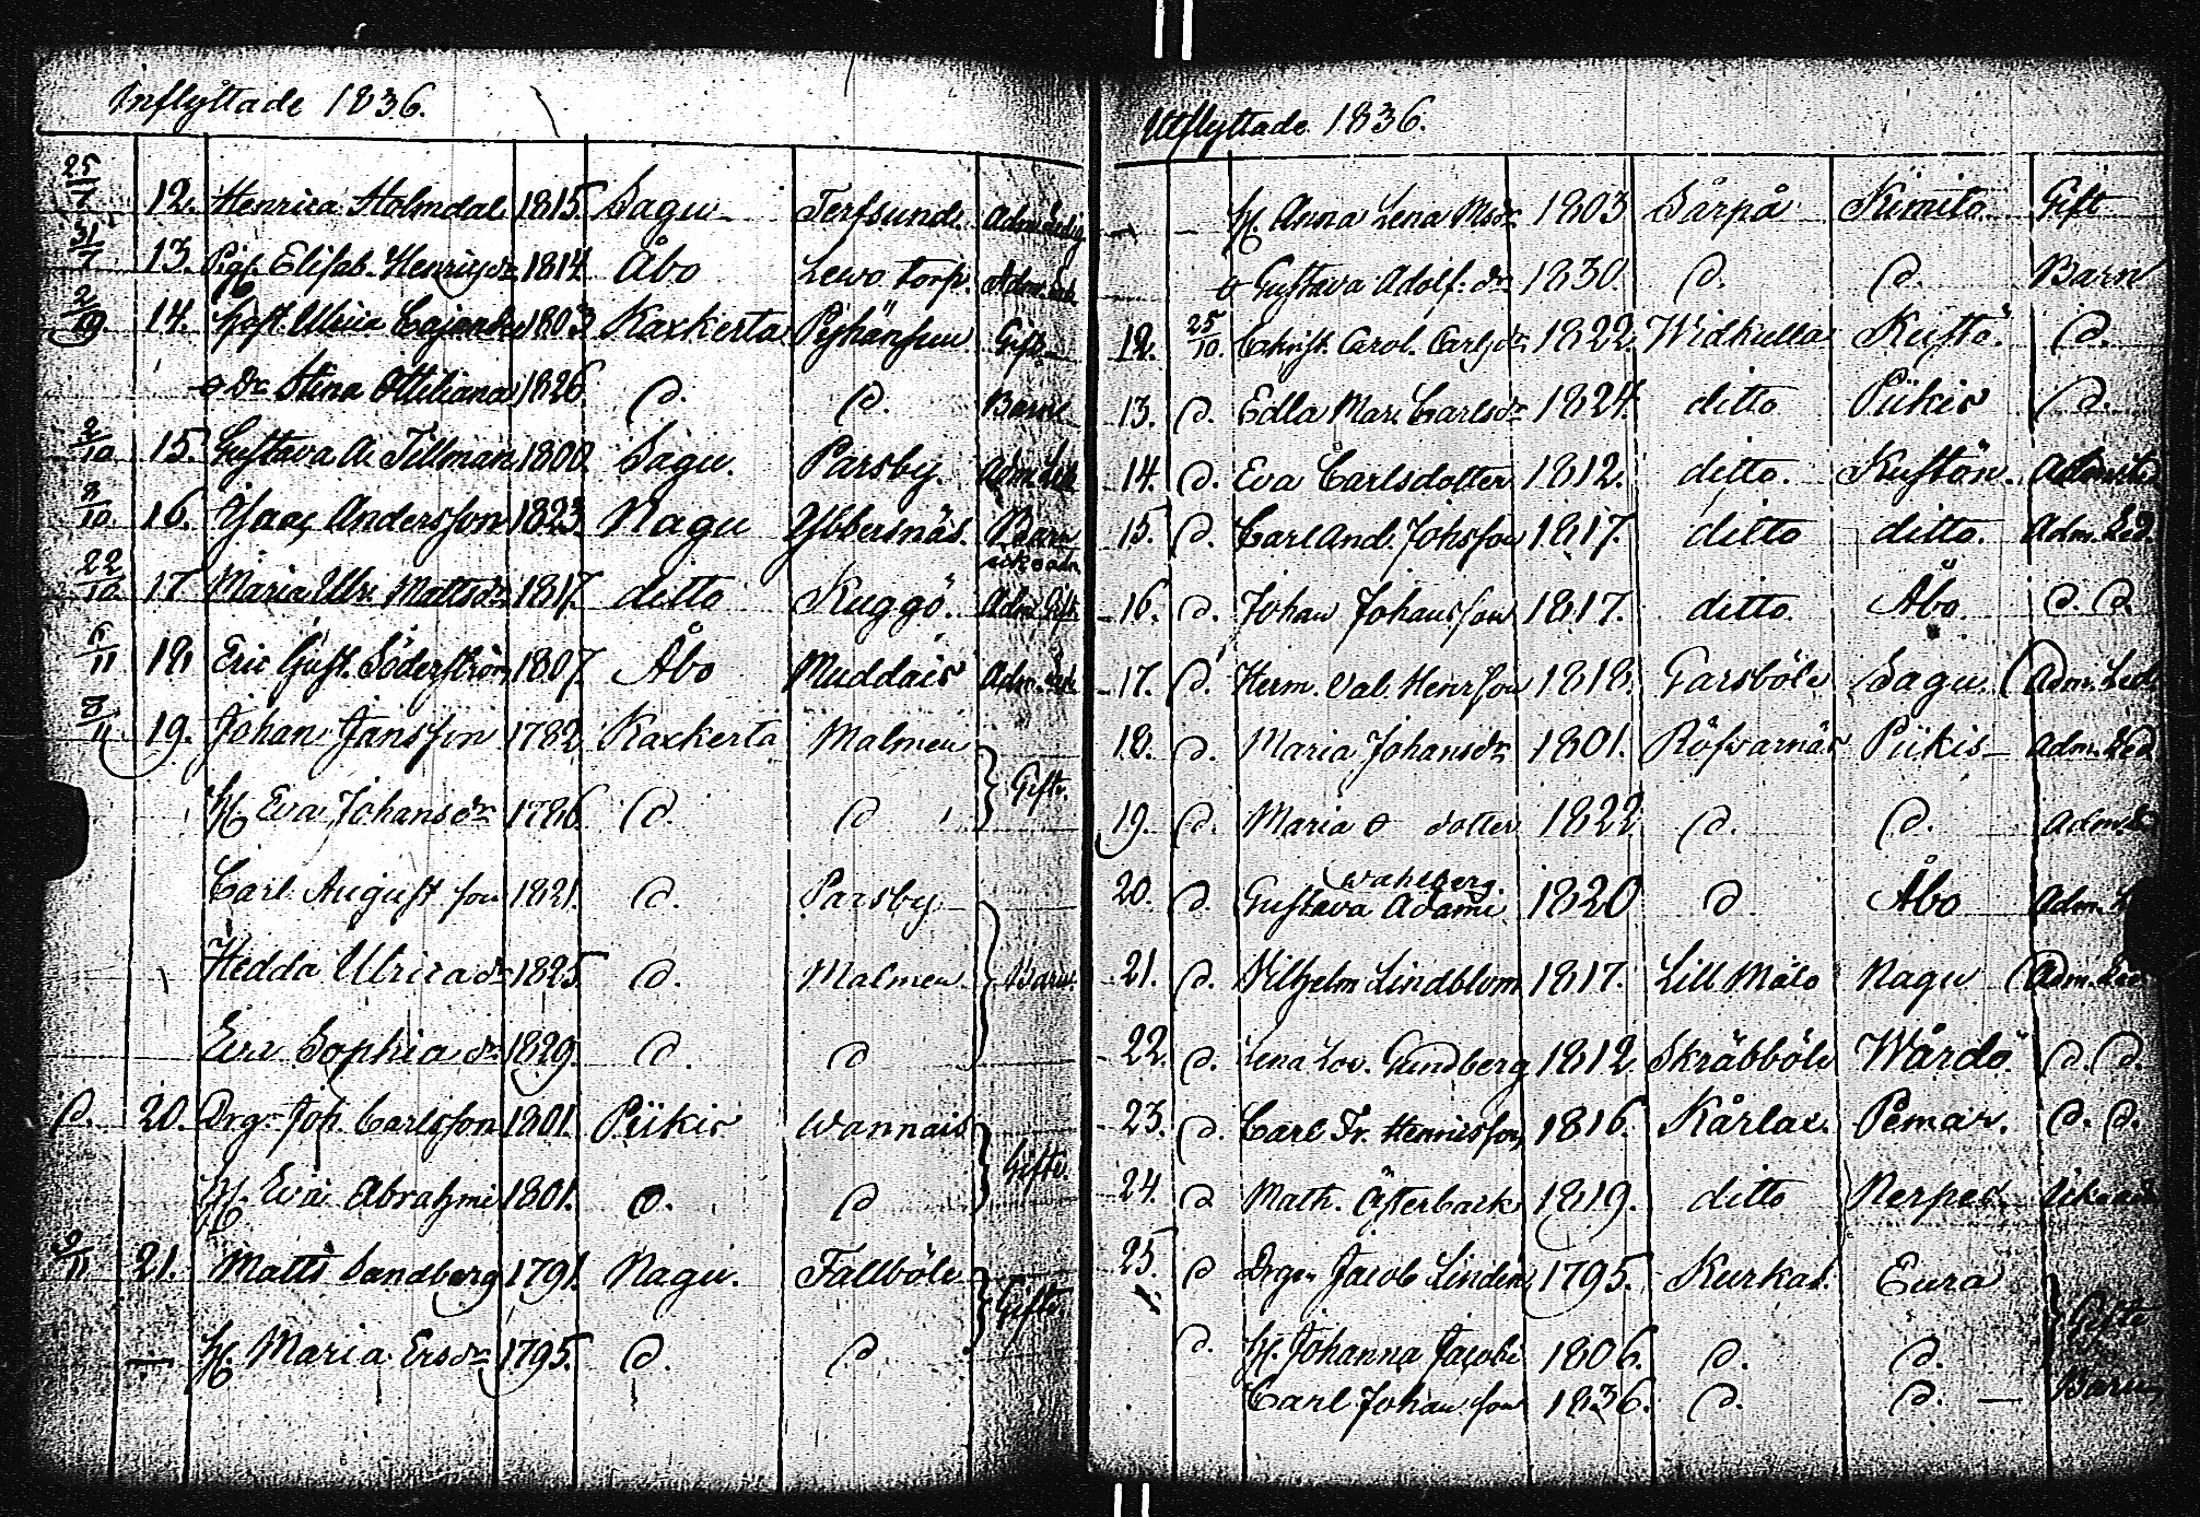 Inflyttade 1836.
25/7 12. Henrica Holmdal 1815. Sagu Terfsund. Adm. Ledig
31/7 13. Pig. Elisab. Henrics dr 1814 Åbo Lewo torp. Adm. Led.
2/10. 14. Hust. Ulrica Cajander 1803 Kaxkerta Gift
o Dr Stina Ottiliana 1826 d. d. Barn
2/10 15. Gustava A. Tillman 1800. Sagu. Parsby. Adm. Led
8/10 16. Isaac Andersson 1823. Nagu Ybbersnäs. Barn
22/10 17 Maria Ulr. Mattsdr 1817. ditto Kuggö. Adm. Gift.
6/11 18 Eric Gust. Söderström 1807. Åbo Muddais Adm. Led.
8/11. 19. Johan Jansson 1782 Kaxkerta Malmen
H. Eva Johansdr 1786 d. d Gifte.
Carl August son 1821. d. Parsby
Hedda Ulrica dr 1825 d. Malmen. Barn.
Eva Sophia dr 1829. d. d
d. 20. Drg. Joh. Carlsson 1801. Piikis Wannais
H. Eva Abrahmi 1801. d. d Gifte.
9/11 21. Matts Sandberg 1791. Nagu. Fallböle
— H. Maria Ersdr 1795. d. d Gifte.
Utflyttade 1836.
— H. Anna Lena Msdr 1803 Sårpå Kimito Gift
o Gustava Adolf. dr 1830. d. d. Barn
12. 25/10. Christ. Carol. Carlsdr 1822. Widkulla Kustö. d.
13. d. Edla Mar. Carlsdr 1824. ditto Piikis d.
14. d. Eva Carlsdotter 1812. ditto. Kustön.
15. d. Carl And. Johsson 1817. ditto ditto. Adm. Led.
16. d. Johan Johansson 1817. ditto. Åbo d. d.
17. d. Herm. Val. Henrson 1818. Garsböle Sagu. Adm. Led
18. d. Maria Johansdr 1801. Röfvarnäs Piikis Adm. Led
19. d. Maria o dotter 1822 d. d. Adm.
Wahlberg.
20. d. Gustava Adami 1820 d Åbo Adm. L
21. d. Vilhelm Lindblom 1817. Lill Målo Nagu Adm. Led
22. d. Lena Lov. Lundberg 1812 Skräbböle Wårdö d. d.
23. d. Carl Fr. Henricsson 1816. Kårlax. Pemar. d. d.
24. d Math. Österback 1819. ditto Nerpes.
25. d Drg. Jacob Lindén 1795. Kurkas. Eura
d. H. Johanna Jacobi 1806. d. d. Gifte
Carl Johan son 1836. d. d. — Barn